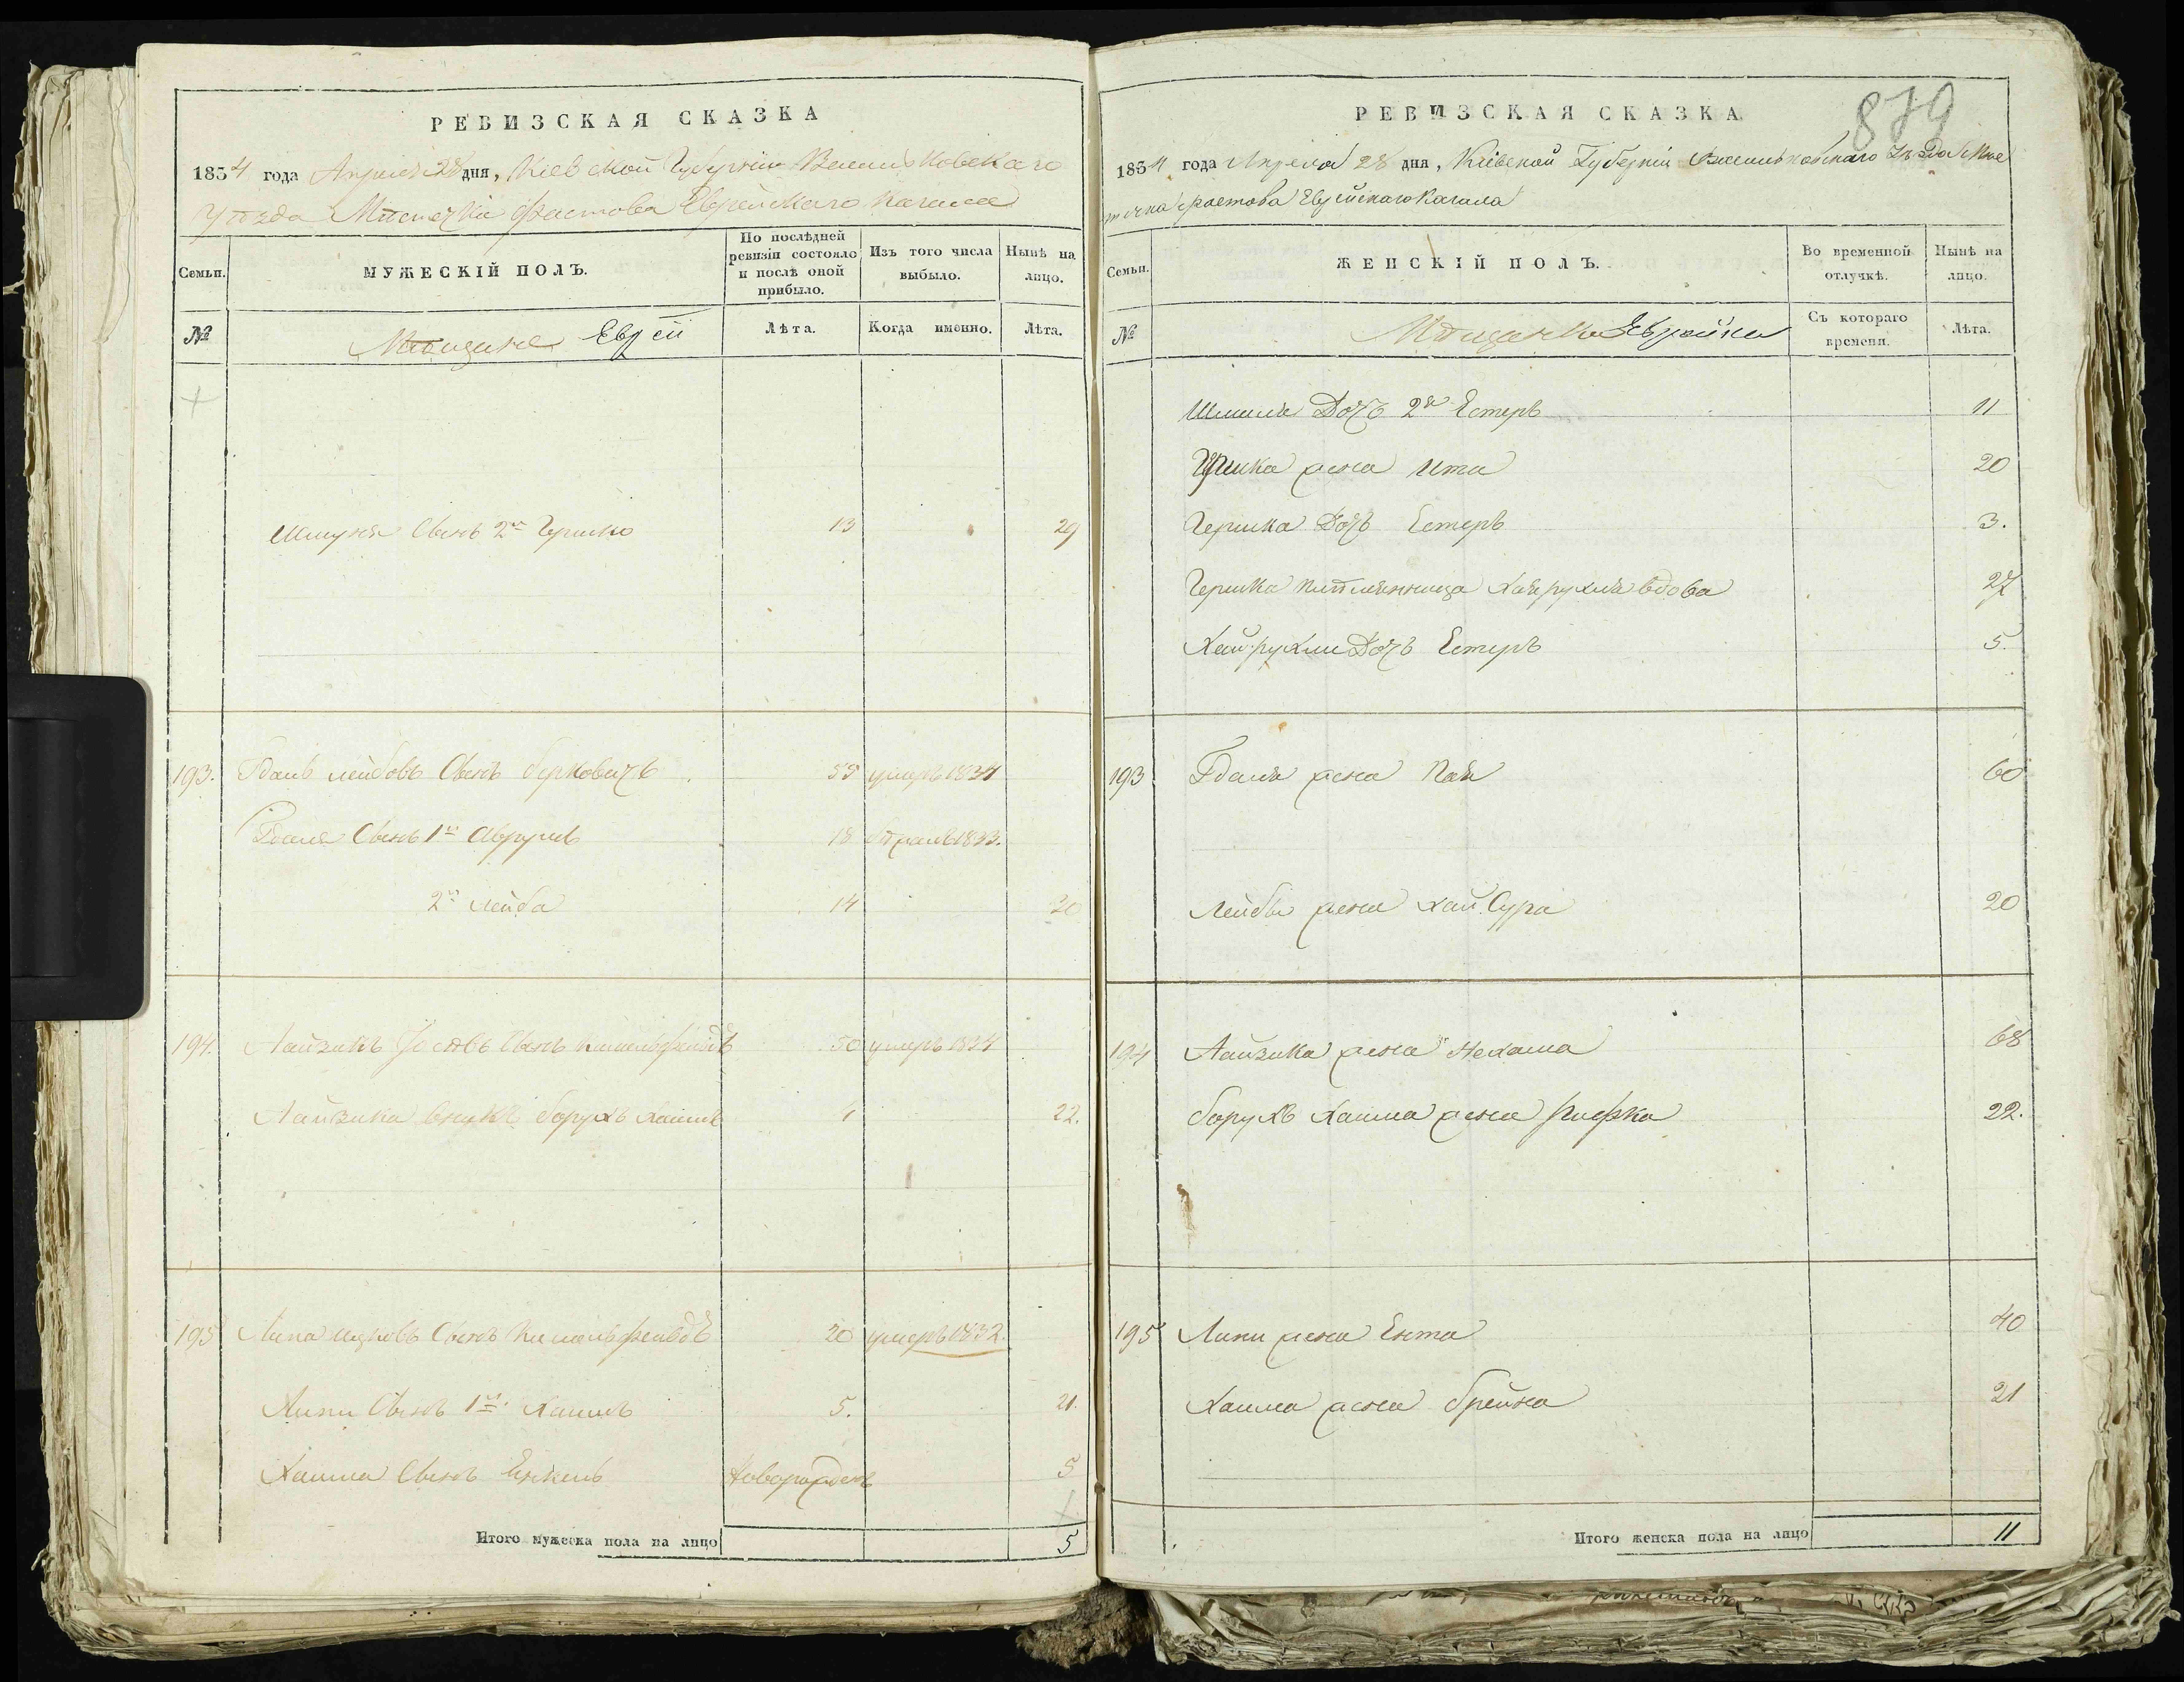 РЕВИЗСКАЯ СКАЗКА
1834 года Апреля 28 дня, Киевской Губернии Васильковскаго
Уѣзда Мѣстечка Фастова Еврейскаго Кагала
Семьи.
МУЖЕСКІЙ ПОЛЪ.
По послѣдней ревизіи состояло и послѣ оной прибыло.
Изъ того числа выбыло.
Нынѣ на лицо.
№
Мѣщане Евреи
Лѣта.
Когда именно.
Лѣта.
Сынъ 2й Гершко 13 29
193. Лейбовъ Сынъ Берковичъ 55 умеръ 1834
Сынъ 1й Аврумъ 18
2й Лейба 14 20
194. Лайзикъ Іосъ Сынъ 50 умеръ 1834
Лайзика внукъ Борухъ Хаимъ 22.
195 Липа Сынъ 20 умеръ 1832.
Липи Сынъ 1й Хаимъ 5. 21.
Хаима Сынъ Новорожденъ 5
Итого мужеска пола на лицо 5
879
РЕВИЗСКАЯ СКАЗКА
1834 года Апреля 28 дня, Кіевской Губерніи Васильковскаго Уѣзда Мѣс
течка Фастова Еврейскаго Кагала
Семьи.
ЖЕНСКІЙ ПОЛЪ.
Во временной отлучкѣ.
Нынѣ на лицо.
№
Мѣщанки Еврейки
Съ котораго времени.
Лѣта.
Дочь 2я Естеръ 11
жена Ита 20
Гершка Дочь Естеръ 3.
Гершка племянница Хая рухля вдова 27
Хай рухли Дочь Естеръ 5.
193 жена Пая 60
Лейбы жена Хай Сура 20
194 Лайзика жена Нехама 68
Борухъ Хаима жена Рифка 22.
195 Липи жена Ента 40
Хаима жена Брейна 21
Итого женска пола на лицо 11